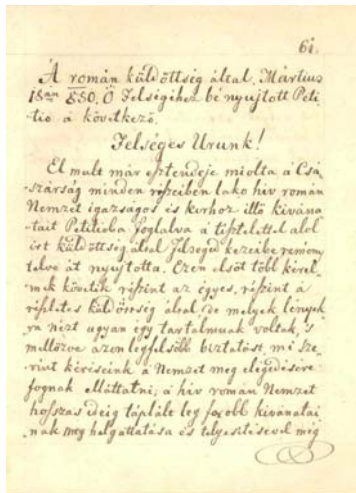 61.
A román küldöttség által, Mártius
18án 850. Ő Felségihez bé nyujtott Peti
tio a következő.
Felséges Urunk!
El mult már esztendeje miolta a Csá-
szárság minden részeiben lakó hiv román
Nemzet igazságos és korhoz illő kivána
tait Petitioba foglalva a tisztelettel alol
irt küldöttség által Felséged kezeibe remény
telve át nyujtotta. Ezen elsőt több kérel
mek követék részint az egyes, részint a
részletes küldöttség által de melyek lények
re nézt ugyan egy tartalmuak voltak, 's
mellőzve azon legfelsőbb biztatást, mi sze-
rint kéréseink a Nemzet meg elégedésére
fognak elláttatni, a hiv román Nemzet
hosszas ideig táplált leg főbb kivánatai
nak meg halgattatása és telyesitésével még